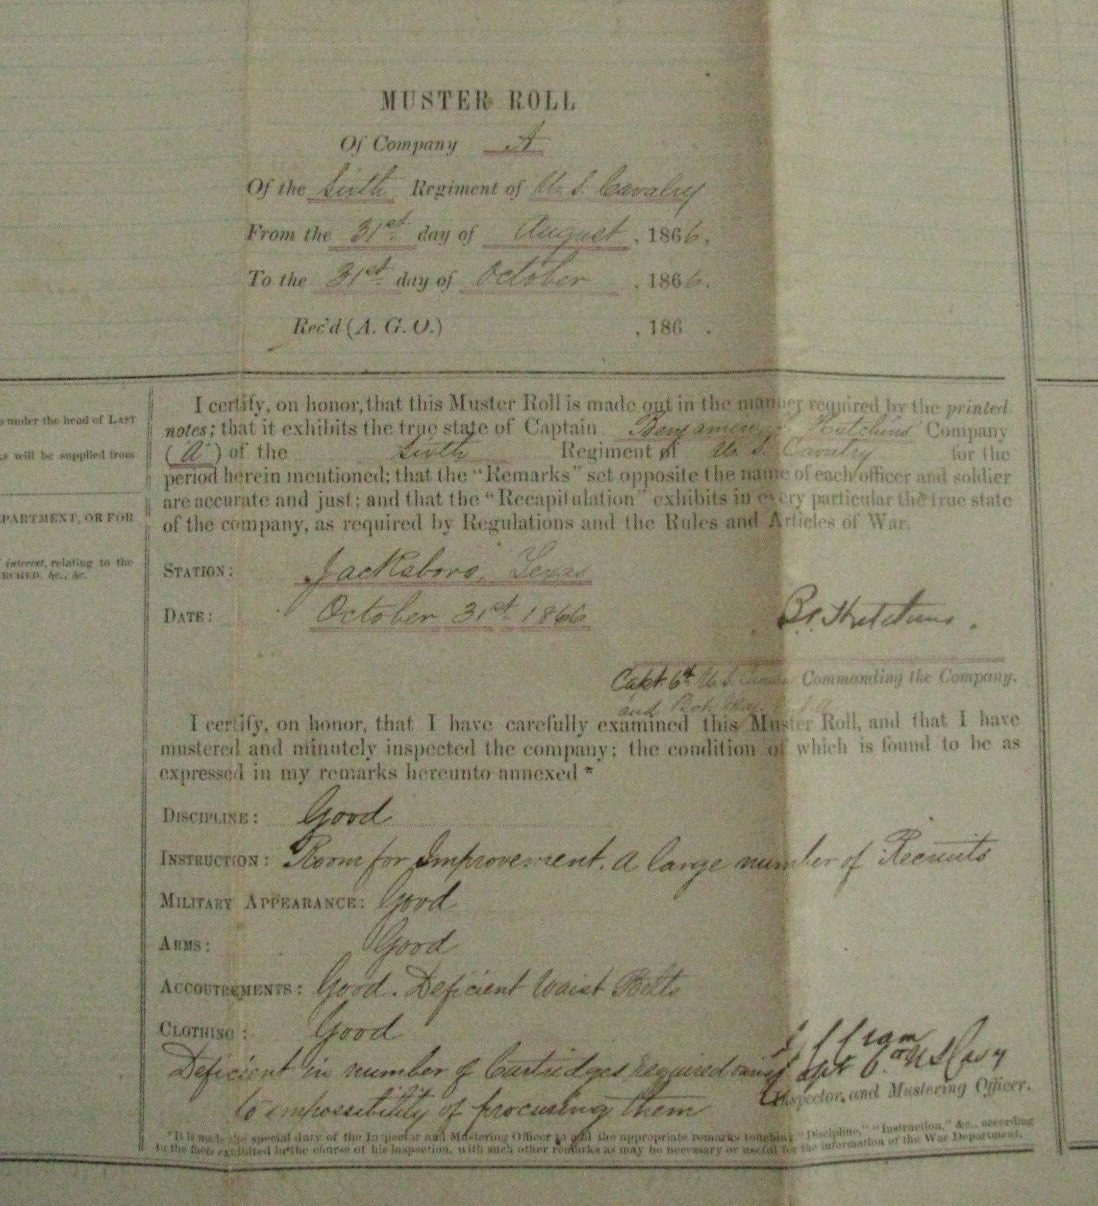 MUSTER ROLL
Of Company A
Of the Sixth Regiment of U. S. Cavalry
From the 31st day of August, 1866.
To the 31st day of October, 1866.
Rec'd (A. G. O.) , 186 .
s under the head of LAST
s will be supplied from
PARTMENT, OR FOR
interest, relating to the
&c., &c.
I certify, on honor, that this Muster Roll is made out in the manner required by the printed
notes; that it exhibits the true state of Captain Benjamin Hutchins' Company
("A") of the Sixth Regiment of U. S. Cavalry for the
period herein mentioned; that the "Remarks" set opposite the name of each officer and soldier
are accurate and just; and that the "Recapitulation" exhibits in every particular the true state
of the company, as required by Regulations and the Rules and Articles of War.
STATION: Jacksboro, Texas
DATE: October 31st 1866
B. Hutchins.
Capt. 6th U. S. Commanding the Company.
and
I certify, on honor, that I have carefully examined this Muster Roll, and that I have
mustered and minutely inspected the company; the condition of which is found to be as
expressed in my remarks hereunto annexed *
DISCIPLINE: Good
INSTRUCTION: Room for Improvement. A large number of Recruits
MILITARY APPEARANCE: Good
ARMS: Good
ACCOUTREMENTS: Good. Deficient Waist Belts
CLOTHING: Good
Deficient in number of Cartridges required owing
to impossibility of procuring them
Capt 6th U S Cavy
Inspector and Mustering Officer.
*It is made the special duty of the Inspector and Mustering Officer to add the appropriate remarks touching "Discipline," "Instruction," &c., according
to the facts exhibited in the course of his inspection, with such other remarks as may be necessary or useful for the information of the War Department.